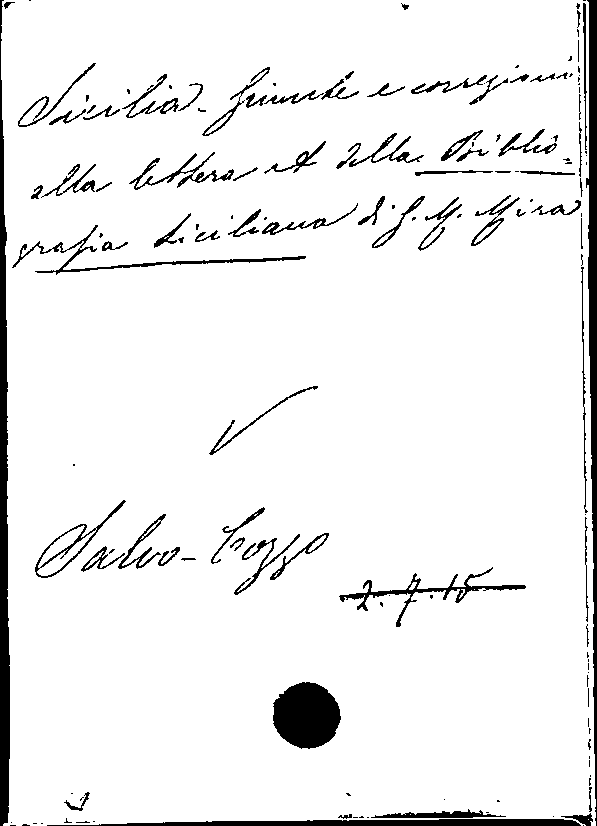 Sicilia - Giunte e correzioni
alla lettera A della Biblio=
grafia Siciliana di G. M. Mira
Salvo-Cozzo
2.7.15